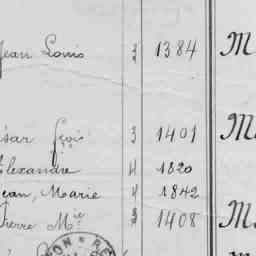 Jean Louis 3 1384 M
ésar fçois 3 1401 M
Alexandre 4 1820
Jean, Marie 4 1842
Pierre Mie 3 1408 M